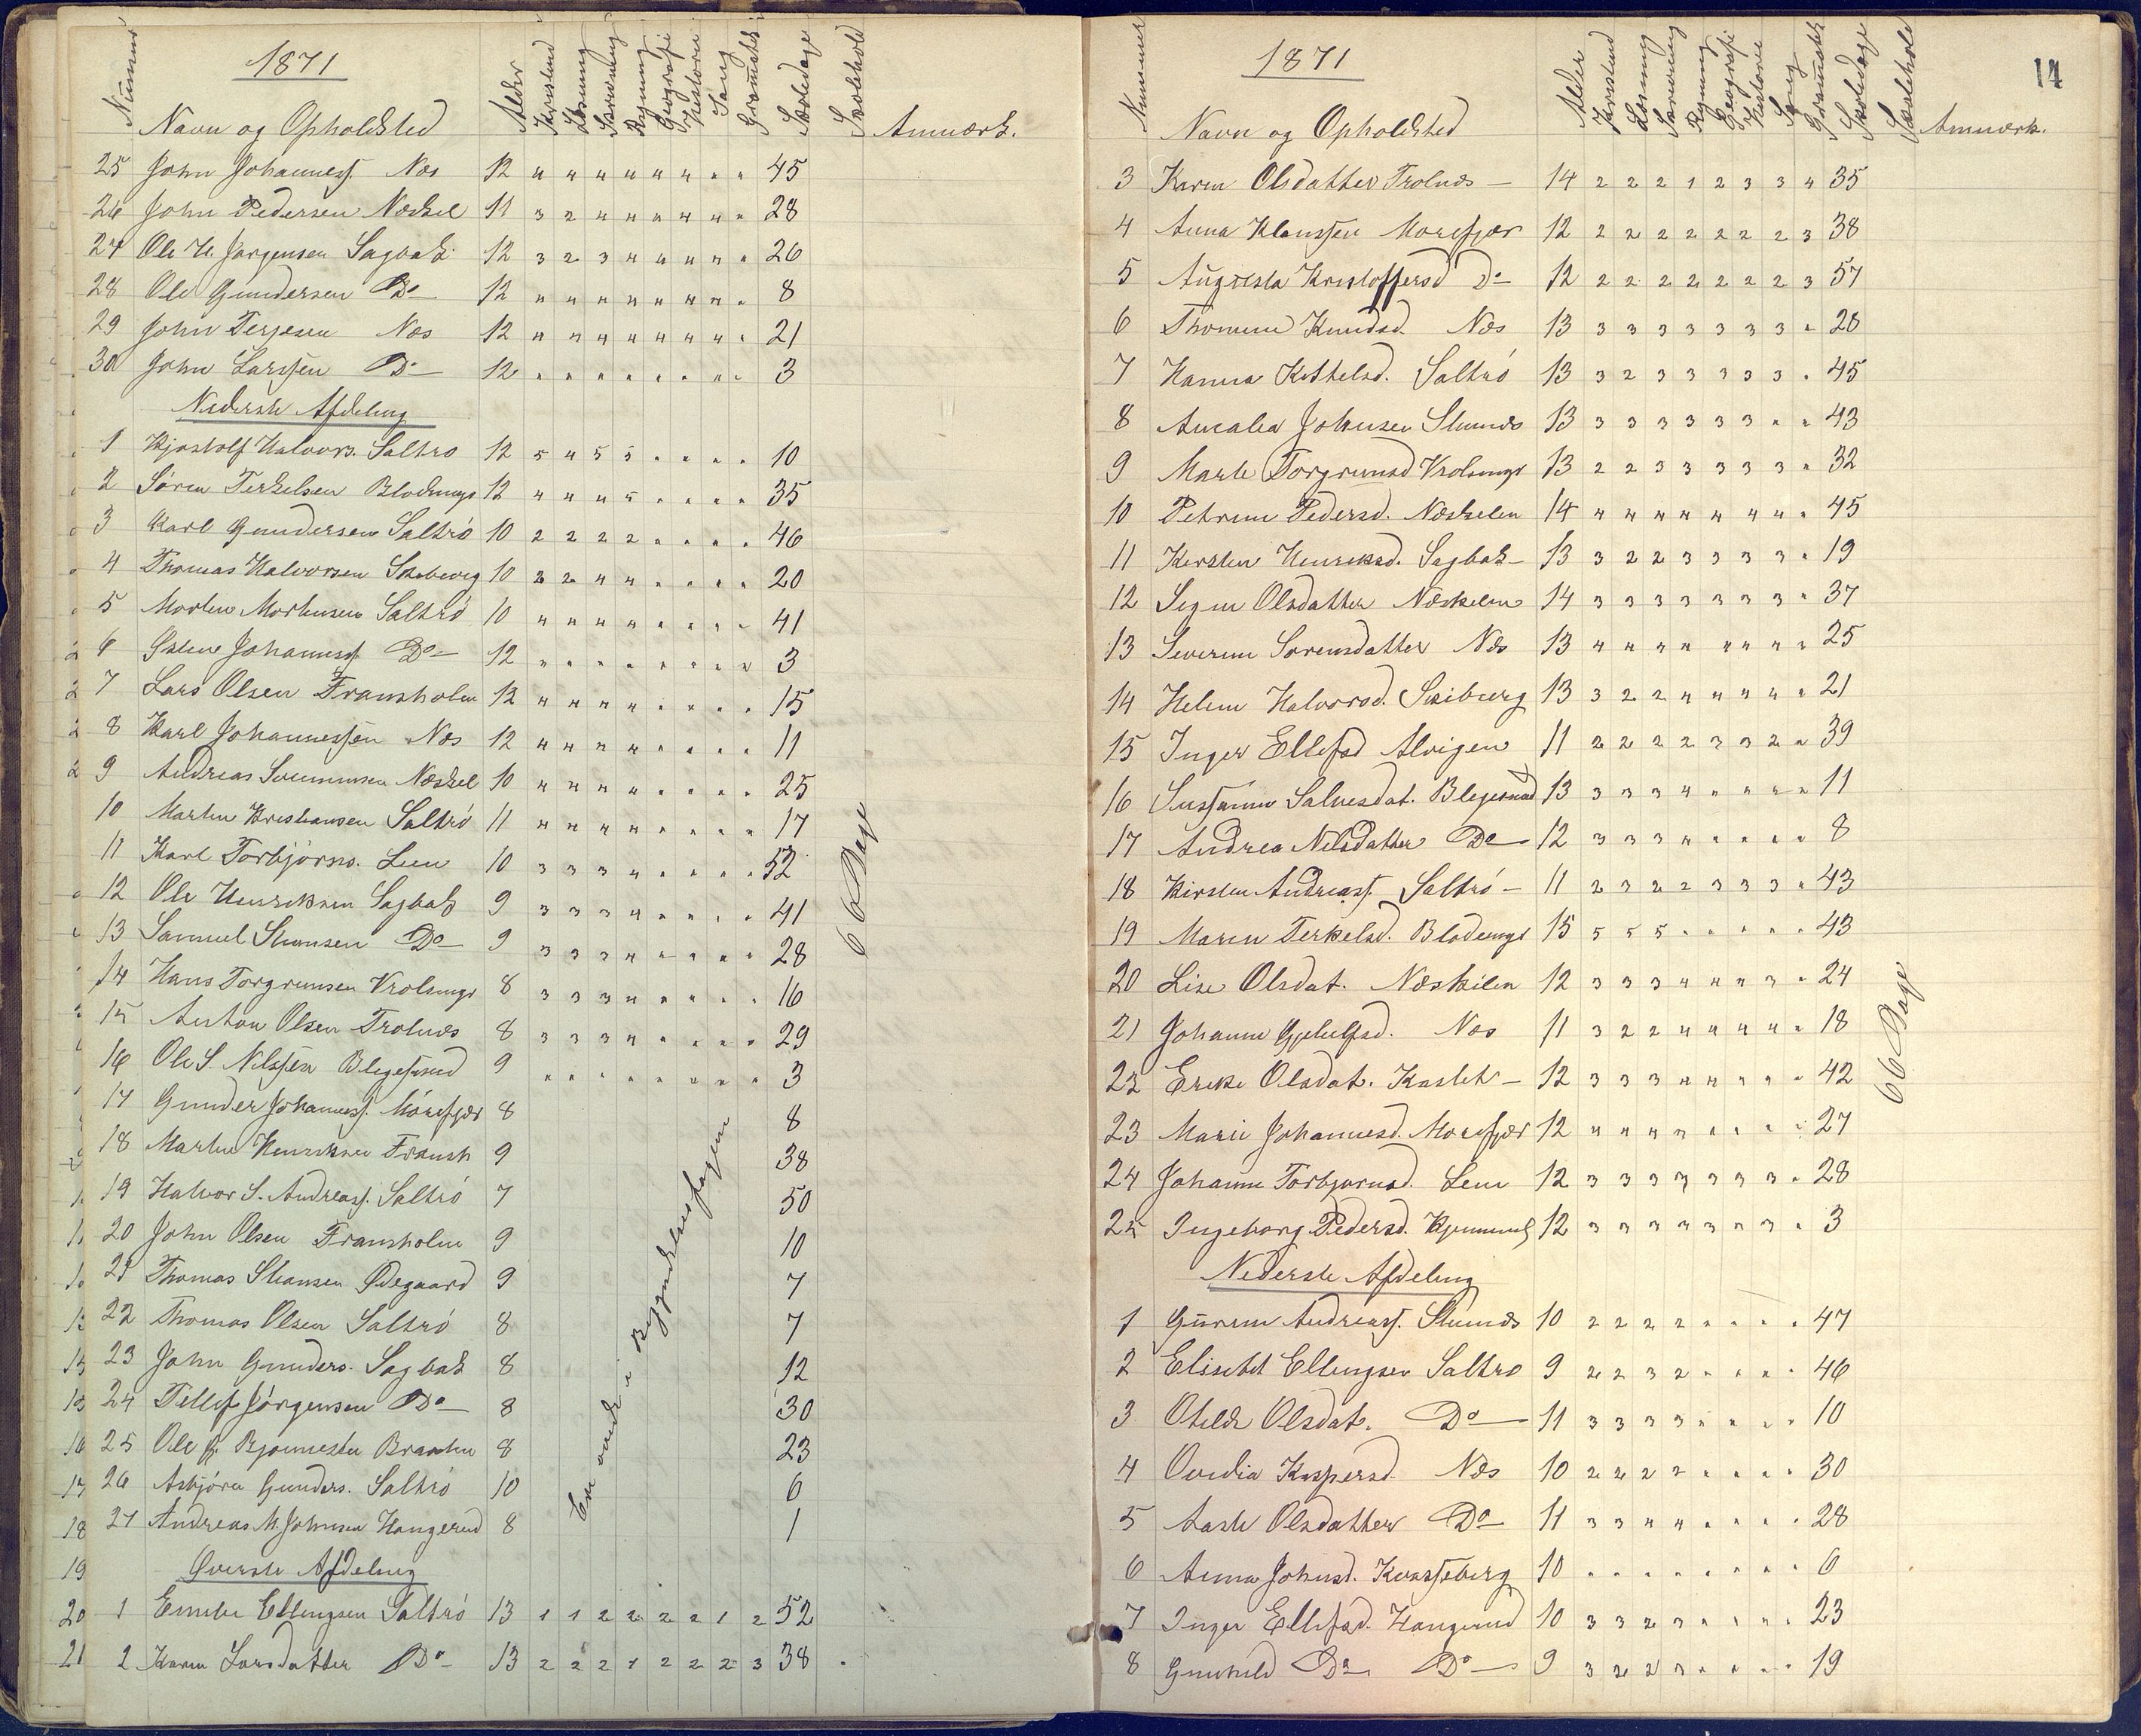 1871
Nummer Navn og Opholdsted Alder Kristend Læsning Skrivning Regning Geografi Historie Sang Gramatik Skoledage Skolehold Anmærk.
25 John Johanness. Næs 12 4 4 4 4 4 4 4 " " 45
26 John Pedersen Næskel 11 3 2 4 4 4 4 4 4 " 28
27 Ole H. Jørgensen Sagbak 12 3 2 3 4 4 4 4 4 " 26
28 Ole Gundersen Do 12 8
29 John Terjesen Næs 12 21
30 John Larssen Do 12 " " " " " " " " 3
Nederste Afdeling
1 Kjøstolf Halvors. Saltrø 12 5 4 5 5 " " " " 10
2 Søren Terkelsen Blødeings 12 4 4 4 5 " " " " 35
3 Karl Gundersen Saltrø 10 2 2 2 2 " " " " 46
4 Thomas Halvorsen 10 2 2 4 4 " " " " 20
5 Morten Mortensen Saltrø 10 4 4 4 4 " " " " 41
6 Johanness. Do 12 3
7 Lars Olsen Fransholm 12 4 4 4 4 " " " " 15
8 Karl Johannessen Næs 12 4 4 4 4 " " " " 11
9 Andreas Næskel 10 4 4 4 4 " " " " 25
10 Martin Kristiansen Saltrø 11 4 4 4 4 " " " " 17
11 Karl Torbjørns. Leen 10 3 3 3 4 " " " " 52
12 Ole Henriksen Sagbak 9 3 3 3 4 " " " " 41
13 Samuel Do 9 3 3 3 4 " " " " 28
14 Hans Torgrimsen 8 3 3 3 4 " " " " 16
15 Anton Olsen Trolnæs 8 3 3 3 4 " " " " 29
16 Ole S. Nilssen Blegesund 9 " " " " " " " " 3
17 Gunder Johanness. Mørefjær 8 8
18 Martin Henriksen Fransh 9 38
19 Halvor S. Andreass. Saltrø 7 50
20 John Olsen Fransholm 9 10
21 Thomas Ødegaard 9 7
22 Thomas Olsen Saltrø 8 7
23 John Gunders. Sagbak 8 12
24 Tellef Jørgensen Do 8 30
25 Ole 8 23
26 Asbjørn Gunders. Saltrø 10 6
27 Andreas M. Johnsen Hangerud 8 1
Ere endnu i Begyndelsesfagene
66 Dage
Øverste Afdeling
1 Emilie Ellingsen Saltrø 13 1 1 2 2 2 2 1 2 52
2 Karen Larsdatter Do 13 2 2 2 1 2 2 2 3 38
1871
14
Nummer Navn og Opholdsted Alder Kristend Læsning Skrivning Regning Geografi Historie Sang Gramatik Skoledage Skolehold Anmærk.
3 Karen Olsdatter Trolnæs 14 2 2 2 1 2 3 3 4 35
4 Anna Klaussen Morefjær 12 2 2 2 2 2 2 2 3 38
5 Augusta Kristoffersd Do 12 2 2 2 2 2 2 2 3 57
6 Thomine Knudsd. Næs 13 3 3 3 3 3 3 3 " 28
7 Hanna Kittelsd. Saltrø 13 3 2 3 3 3 3 3 " 45
8 Amalia Johnsen 13 3 3 3 3 3 3 " " 43
9 Marte Torgrimsd 13 2 2 3 3 3 3 3 " 32
10 Petrine Pedersd. Næskelen 14 4 4 4 4 4 4 4 " 45
11 Kirsten Henriksd. Sagbak 13 3 2 2 3 3 3 3 " 19
12 Signe Olsdatter Næskelen 14 3 3 3 3 3 3 3 " 37
13 Severine Sørensdatter Næs 13 25
14 Helene Halvorsd. 13 3 2 2 4 4 4 4 " 21
15 Inger Ellefsd Alvigen 11 2 2 2 2 3 3 2 " 39
16 Sussanne Salvesdat. Blegesund 13 3 3 3 4 " " " " 11
17 Andrea Nilsdatter Do 12 3 3 3 4 " " " " 8
18 Kirsten Andreass. Saltrø 11 2 3 2 2 3 3 3 " 43
19 Maren Terkelsd. Blødeings 15 5 5 5 " " " " " 43
20 Lise Olsdat. Næskilen 12 3 3 3 4 4 4 3 " 24
21 Johanne Næs 11 3 2 2 4 4 4 4 " 18
22 Erike Olsdat. Kastet 12 42
23 Marie Johannesd. Morefjær 12 4 4 4 4 " " " " 27
24 Johanne Torbjørnsd. Leen 12 3 3 3 3 3 3 3 " 28
25 Ingeborg Pedersd. 12 3 3 3 3 3 3 3 " 3
66 Dage
Nederste Afdeling
1 Andreass. 10 2 2 2 2 " " " " 47
2 Elisabet Ellingsen Saltrø 9 2 2 3 2 " " " " 46
3 Otilde Olsdat. Do 11 3 3 3 3 " " " " 10
4 Ovidia Kaspersd. Næs 10 2 2 2 2 " " " " 30
5 Aaste Olsdatter Do 11 3 3 4 4 " " " " 28
6 Anna Johnsd. 10 " " " " " " " " 6
7 Inger Ellefsd. Hangerud 10 3 3 2 3 " " " " 23
8 Gunhild Do Do 9 3 2 2 3 " " " " 19